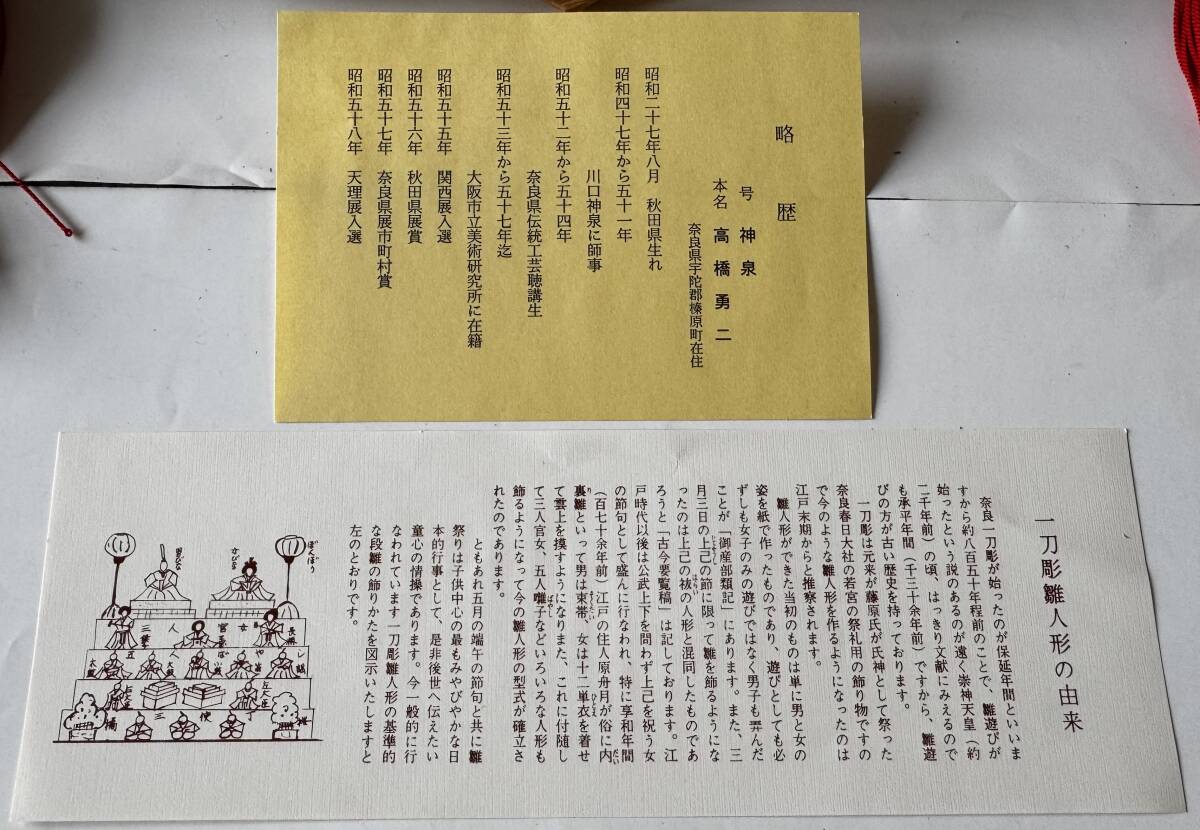 略歴
号 神泉
本名 高橋勇二
奈良県宇陀郡榛原町在住
昭和二十七年八月 秋田県生れ
昭和四十七年から五十一年
川口神泉に師事
昭和五十二年から五十四年
奈良県伝統工芸聴講生
昭和五十三年から五十七年迄
大阪市立美術研究所に在籍
昭和五十五年 関西展入選
昭和五十六年 秋田県展賞
昭和五十七年 奈良県展市町村賞
昭和五十八年 天理展入選
一刀彫雛人形の由来
奈良一刀彫が始ったのが保延年間といいま
すから約八百五十年程前のことで、雛遊びが
始ったという説のあるのが遠く崇神天皇(約
二千年前)の頃、はっきり文献にみえるので
も承平年間(千三十余年前)ですから、雛遊
びの方が古い歴史を持っております。
一刀彫は元来が藤原氏が氏神として祭った
奈良春日大社の若宮の祭礼用の飾り物ですの
で今のような雛人形を作るようになったのは
江戸末期からと推察されます。
雛人形ができた当初のものは単に男と女の
姿を紙で作ったものであり、遊びとしても必
ずしも女子のみの遊びではなく男子も弄んだ
ことが「御産部類記」にあります。また、三
月三日の上己の節に限って雛を飾るようにな
ったのは上己の祓の人形と混同したものであ
ろうと「古今要覧稿」は記しております。江
戸時代以後は公武上下を問わず上己を祝う女
の節句として盛んに行なわれ、特に享和年間
(百七十余年前)江戸の住人原舟月が俗に内
裏雛といって男は束帯、女は十二単衣を着せ
て雲上を摸すようになりまた、これに付随し
て三人官女、五人囃子などいろいろな人形も
飾るようになって今の雛人形の型式が確立さ
れたのであります。
ともあれ五月の端午の節句と共に雛
祭りは子供中心の最もみやびやかな日
本的行事として、是非後世へ伝えたい
童心の情操であります。今一般的に行
なわれています一刀彫雛人形の基準的
な段雛の飾りかたを図示いたしますと
左のとおりです。
ぼんぼり
めびな
男びな
三人官女
五人ばやし
三使丁
橘